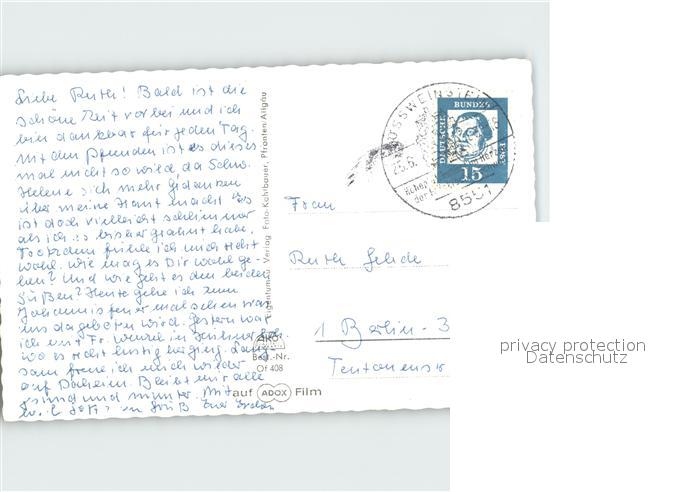 Liebe Ruth! Bald ist die
schöne Zeit vorbei und ich
bin dankbar für jeden Tag.
Mit den Pfunden ist es dieses
mal nicht so wild, da Schw.
Helene sich mehr Gedanken
über meine Haut macht. Es
ist doch vielleicht schlimmer
als ich es bisher geahnt habe.
Trotzdem fühle ich mich recht
wohl. Wie mag es Dir wohl ge-
hen? Und wie geht es den beiden
Süßen? Heute gehe ich zum
Johannisfeuer mal sehen was
uns da geboten wird. Gestern war
ich mit Fr.
wo es recht lustig herging. Lang-
sam freue ich mich wieder
auf Daheim. Bleibt mir alle
gesund und munter. Mit
Gruß
Verlag Foto-Kohlbauer, Pfronten/Allgäu
Best.-Nr.
Of 408
auf ADOX Film
GÖSSWEINSTEIN
25.6.
8551
DEUTSCHE BUNDESPOST
15
Frau
Ruth
1 Berlin-3
privacy protection
Datenschutz